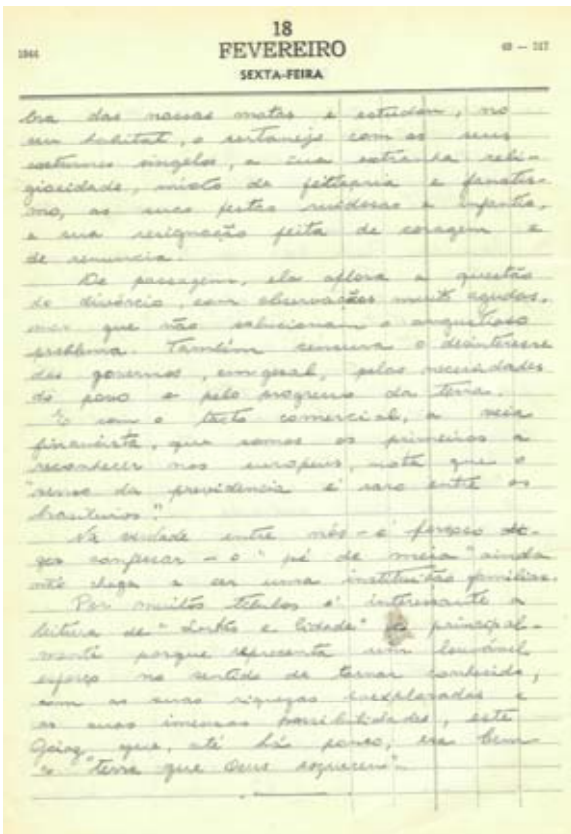 18
1944 FEVEREIRO 49 — 317
SEXTA-FEIRA
bra das nossas matas e estudou, no
seu habitat, o sertanejo com os seus
costumes singelos, a sua estranha reli-
giosidade, misto de feitiçaria e fanatis-
mo, as suas festas ruidosas e infantis,
a sua resignação feita de coragem e
de renuncia.
De passagem, ela aflora a questão
do divórcio, com observações muito agudas,
mas que não solucionam o angustioso
problema. Também censura o desinteresse
dos governos, em geral, pelas necessidades
do povo e pelo progresso da terra.
E com o tacto comercial, a veia
financista, que somos os primeiros a
reconhecer nos europeus, nota que o
"senso da previdencia é raro entre os
brasileiros".
Na verdade entre nós - é forçoso
confessar - o "pé de meia" ainda
não chega a ser uma instituição familiar.
Por muitos titulos é interessante a
leitura de " e Cidade" principal-
mente porque representa um louvável
esforço no sentido de tornar conhecido,
com as suas riquezas inexploradas e
as suas imensas possibilidades, este
Goiaz que, até há pouco, era bem
a "terra que Deus esqueceu".